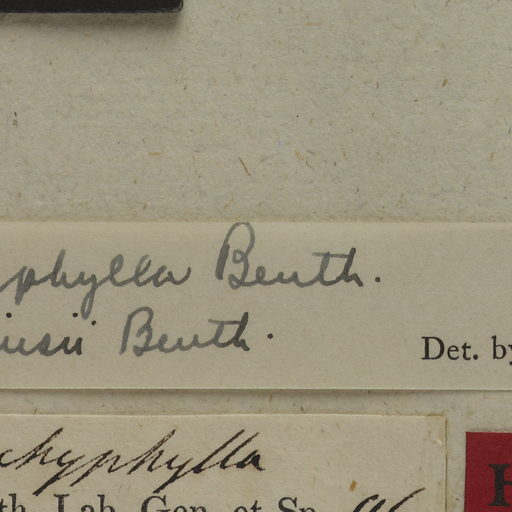 phylla Benth.
insii Benth.
Det. by
chyphylla
th. Lab. Gen. et Sp.
H